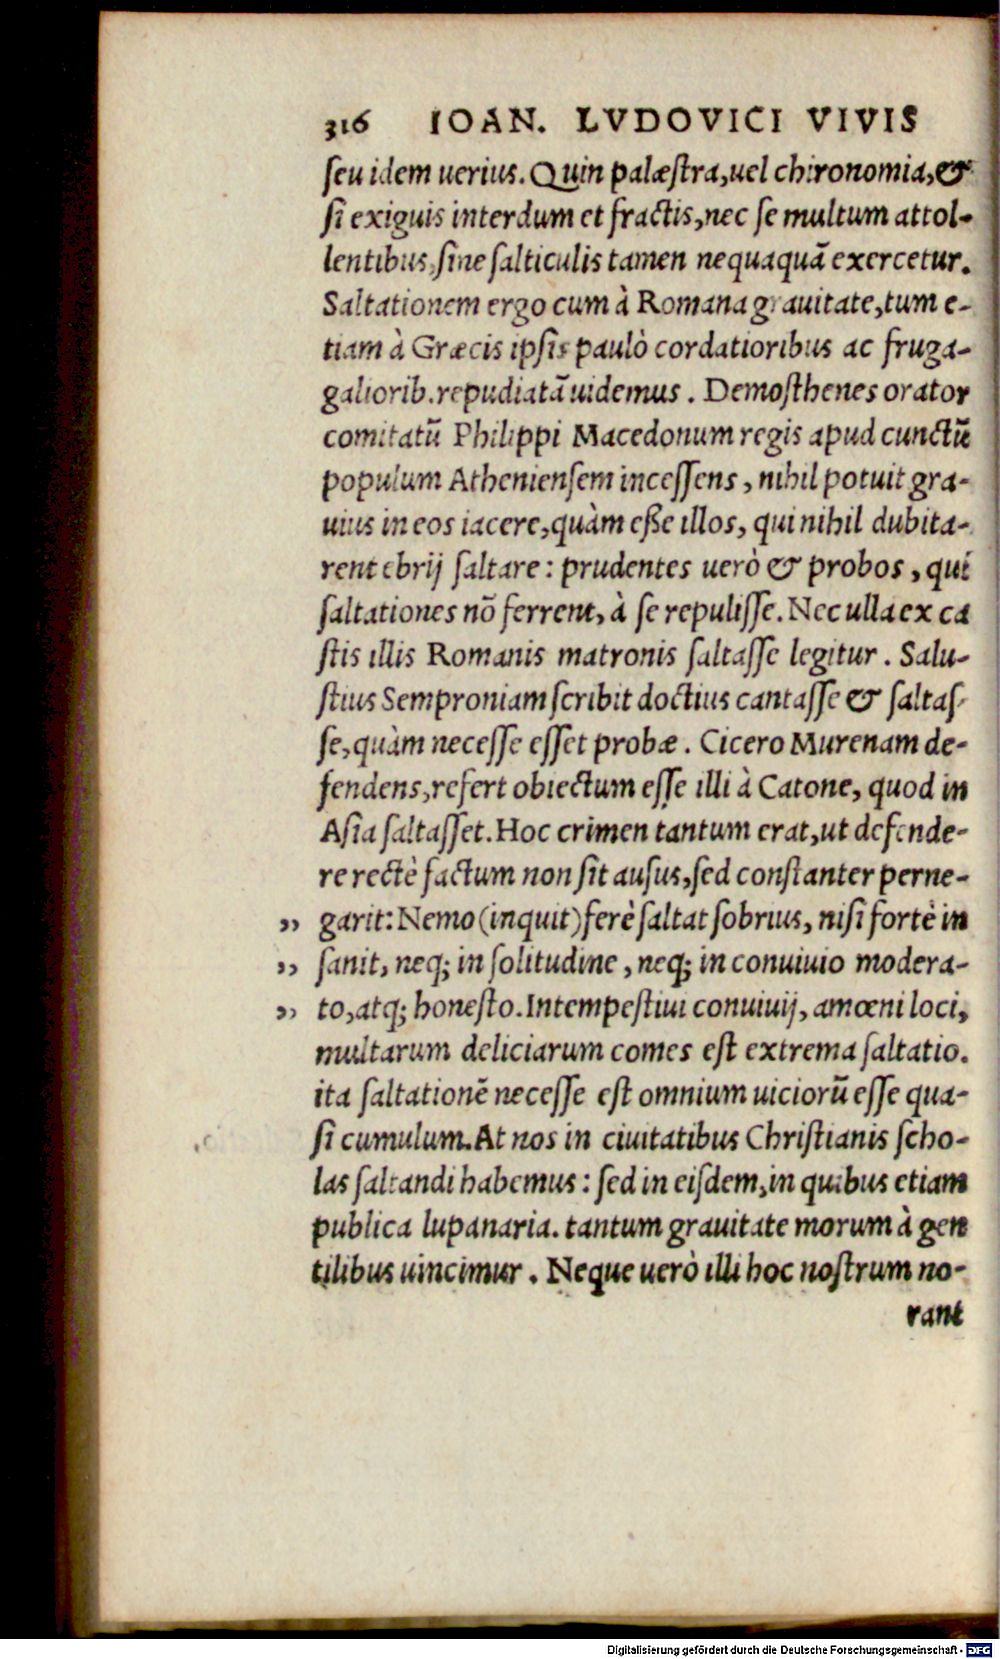 316 IOAN. LVDOVICI VIVIS
ſeu idem uerius. Quin palæſtra, uel chironomia, &
ſi exiguis interdum et fractis, nec ſe multum attol-
lentibus, ſine ſalticulis tamen nequaquã exercetur.
Saltationem ergo cum à Romana grauitate, tum e-
tiam à Græcis ipſis paulò cordatioribus ac fruga-
galiorib. repudiatã uidemus. Demoſthenes orator
comitatũ Philippi Macedonum regis apud cunctũ
populum Athenienſem inceſſens, nihil potuit gra-
uius in eos iacere, quàm eſſe illos, qui nihil dubita-
rent ebrij ſaltare: prudentes uerò & probos, qui
ſaltationes nõ ferrent, à ſe repuliſſe. Nec ulla ex ca
ſtis illis Romanis matronis ſaltaſſe legitur. Salu-
ſtius Semproniam ſcribit doctius cantaſſe & ſaltaſ-
ſe, quàm neceſſe eſſet probæ. Cicero Murenam de-
fendens, refert obiectum eſſe illi à Catone, quod in
Aſia ſaltaſſet. Hoc crimen tantum erat, ut defende-
re rectè factum non ſit auſus, ſed conſtanter perne-
„ garit: Nemo (inquit) ferè ſaltat ſobrius, niſi fortè in
„ ſanit, neq; in ſolitudine, neq; in conuiuio modera-
„ to, atq; honeſto. Intempeſtiui conuiuij, amœni loci,
multarum deliciarum comes eſt extrema ſaltatio.
ita ſaltationẽ neceſſe eſt omnium uiciorũ eſſe qua-
ſi cumulum. At nos in ciuitatibus Chriſtianis ſcho-
las ſaltandi habemus: ſed in eiſdem, in quibus etiam
publica lupanaria. tantum grauitate morum à gen
tilibus uincimur. Neque uerò illi hoc noſtrum no-
rant
Digitalisierung gefördert durch die Deutsche Forschungsgemeinschaft - DFG